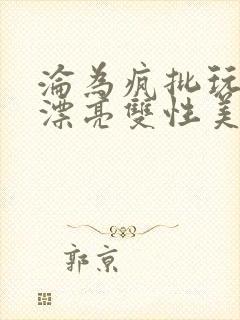 淪為瘋批玩
漂亮雙性美
郭京